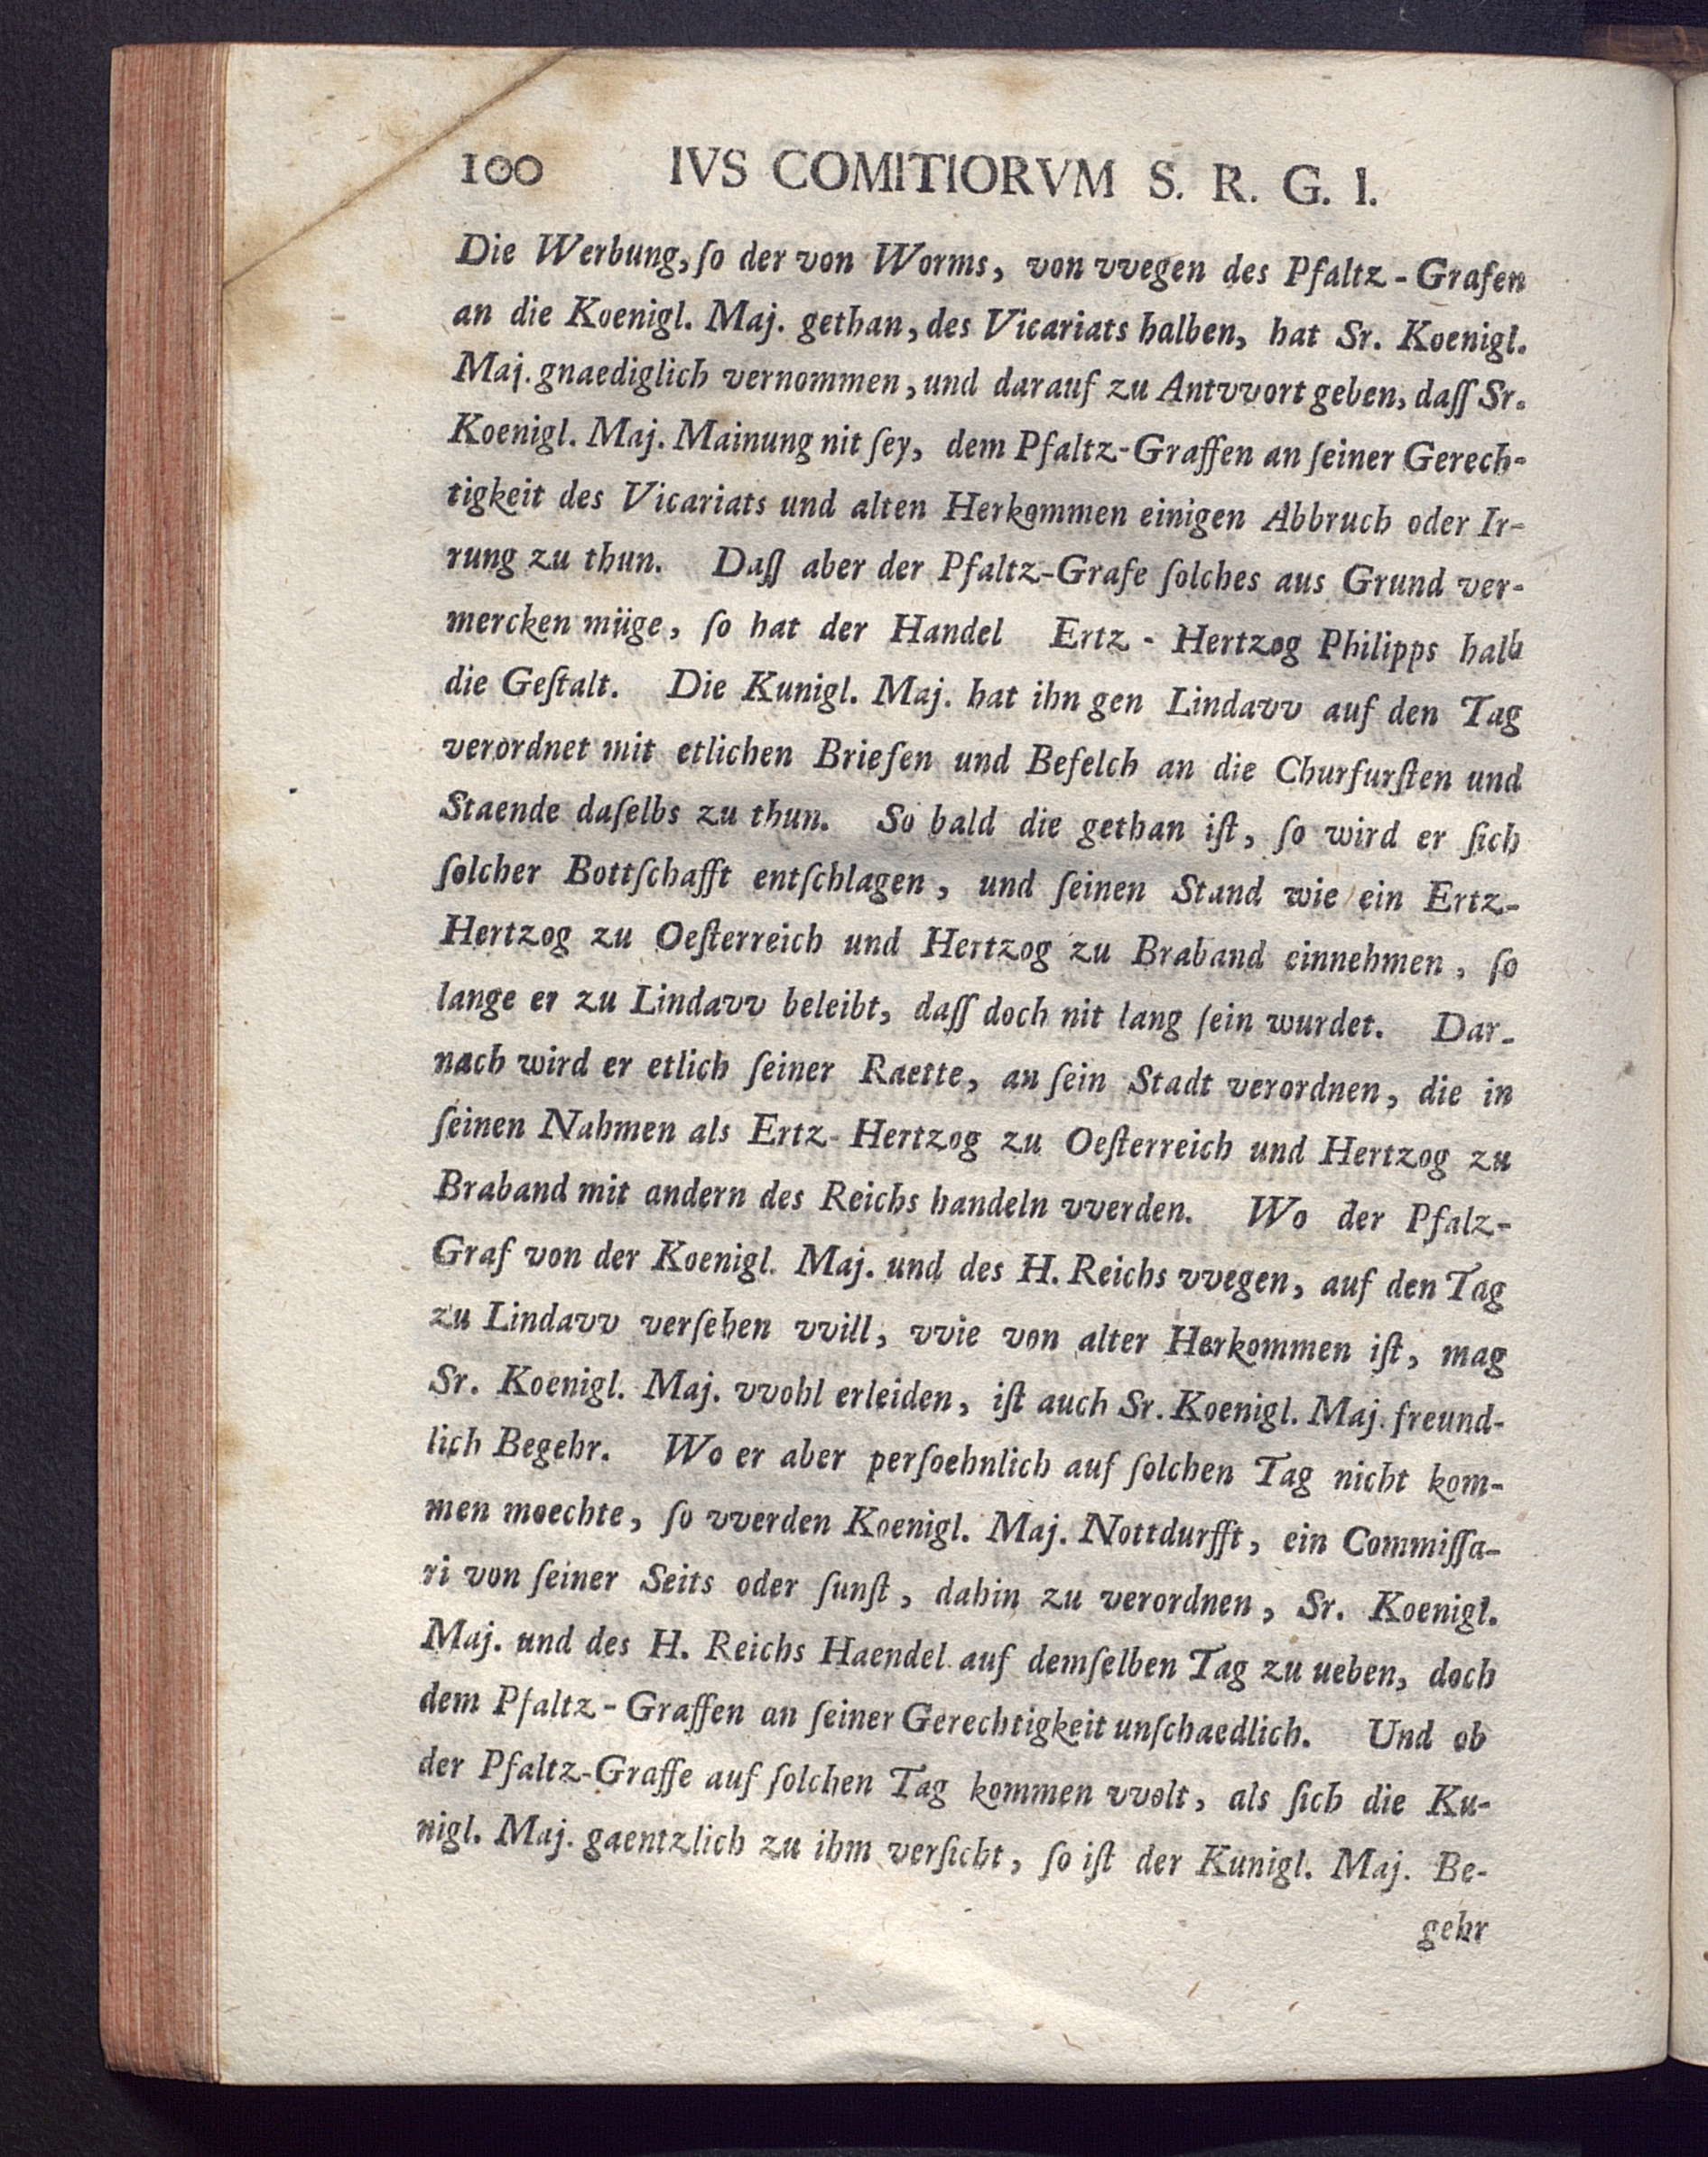 100 IVS COMITIORVM S. R. G. I.
Die Werbung, ſo der von Worms, von vvegen des Pfaltz-Grafen
an die Koenigl. Maj. gethan, des Vicariats halben, hat Sr. Koenigl.
Maj. gnaediglich vernommen, und darauf zu Antvvort geben, daſſ Sr.
Koenigl. Maj. Mainung nit ſey, dem Pfaltz-Graffen an ſeiner Gerech-
tigkeit des Vicariats und alten Herkommen einigen Abbruch oder Ir-
rung zu thun. Daſſ aber der Pfaltz-Grafe ſolches aus Grund ver-
mercken müge, ſo hat der Handel Ertz-Hertzog Philipps halb
die Geſtalt. Die Kunigl. Maj. hat ihn gen Lindavv auf den Tag
verordnet mit etlichen Briefen und Befelch an die Churfurſten und
Staende daſelbs zu thun. So bald die gethan iſt, ſo wird er ſich
ſolcher Bottſchafft entſchlagen, und ſeinen Stand wie ein Ertz-
Hertzog zu Oeſterreich und Hertzog zu Braband einnehmen, ſo
lange er zu Lindavv beleibt, daſſ doch nit lang ſein wurdet. Dar-
nach wird er etlich ſeiner Raette, an ſein Stadt verordnen, die in
ſeinen Nahmen als Ertz-Hertzog zu Oeſterreich und Hertzog zu
Braband mit andern des Reichs handeln vverden. Wo der Pfalz-
Graf von der Koenigl. Maj. und des H. Reichs vvegen, auf den Tag
zu Lindavv verſehen vvill, vvie von alter Herkommen iſt, mag
Sr. Koenigl. Maj. vvohl erleiden, iſt auch Sr. Koenigl. Maj. freund-
lich Begehr. Wo er aber perſoehnlich auf ſolchen Tag nicht kom-
men moechte, ſo vverden Koenigl. Maj. Nottdurfft, ein Commiſſa-
ri von ſeiner Seits oder ſunſt, dahin zu verordnen, Sr. Koenigl.
Maj. und des H. Reichs Haendel auf demſelben Tag zu ueben, doch
dem Pfaltz-Graffen an ſeiner Gerechtigkeit unſchaedlich. Und ob
der Pfaltz-Graffe auf ſolchen Tag kommen vvolt, als ſich die Ku-
nigl. Maj. gaentzlich zu ihm verſicht, ſo iſt der Kunigl. Maj. Be-
gehr